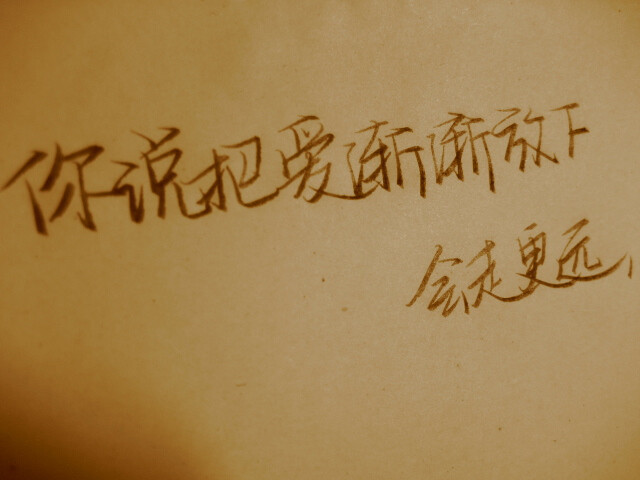 你说把爱渐渐放下
会走更远